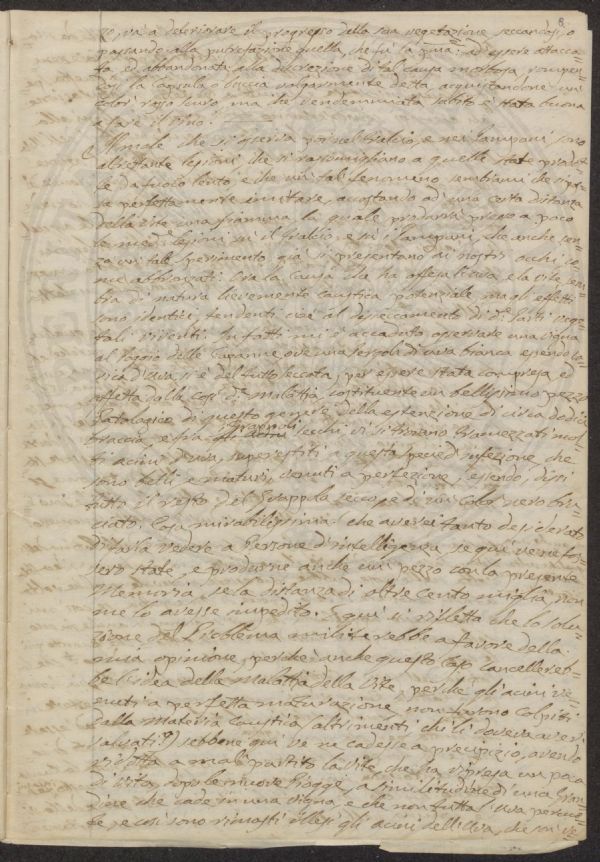 8
zo, va a deteriorare il progresso della sua vegetazione seccandosi, o
passando alla putrefazione quella, che fu la p͞ma: ad essere attacca=
ta, ed abbandonata alla discrezione di tal causa morbosa, rompen=
dosi la capsula o buccia volgarmente detta, acquistandone un
color rosso scuro, ma che vendemmiata subito è stata buona
a fare il vino.
Il male che si osserva poi nel tralcio, e nei sarmponi sono
altrettante lesioni che si rassomigliano a quelle state prodot=
te da fuoco lento, e che un tal fenomeno, sembrami che si pos=
sa perfettamente imitare, accostando ad una certa distanza
della vite una fiamma, la quale produrrà presso a poco
le med:e lesioni su il tralcio, e su i, che anche sen=
za un tale sperimento già si presentano ai nostri occhi co=
me abbronzati. Ora la causa che ha offesa l'uva, e la vite sem=
bra di natura lievemente caustica potenziale, ma gli effetti
sono identici, tendenti cioè al disseccamento di d:e parti vege=
tali viventi. Infatti mi è accaduto osservare una vigna
al Poggio delle Capanne, ove una pergola di uva bianca essendo ca=
rica d'uva, si è del tutto seccata, per essere stata compresa, e
affetta dalla così d:a malattia, costituente un bellissimo pezzo
Patologico di questo genere della estensione di circa dodici
braccia, e fra grappoli secchi vi si trovano tramezzati mol=
ti acini d'uva, superstiti a questa specie d'infezione che
sono belli, e maturi, venuti a perfezione, essendo, dissi
tutto il resto del grappolo secco, e di un color nero bru=
ciato. Cosa mirabilissima! che averei tanto desiderato
di farla vedere a Persone d'intelligenza, se qui ve ne fos=
sero state, e produrne anche un pezzo con la presente
Memoria, se la distanza di oltre cento miglia, non
me lo avesse impedito. E qui si rifletta che lo solu=
zione del Problema militerebbe a favore della
mia opinione, perchè anche questo caso cancelleret=
be l'idea della Malattia della Vite, perchè gli acini ve=
nuti a perfetta maturazione non furono colpiti
dalla materia caustica (altrimenti chi li doveva aver
salvati?) sebbene qui ve ne cadesse a precipizio, avendo
ridotta a mal partito la Vite, che ha ripresa un poco
di vita, dopo le nuove Piogge, a similitudine di una Gran=
dine che cade in una Vigna, e che non tutta l'uva percuo=
te, e così sono rimasti illesi gli acini dell'Uva, che poi ve=